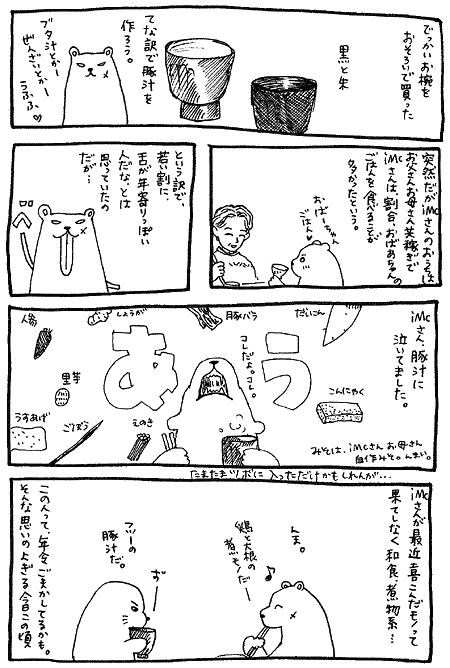 でっかいお椀を
おそろいで買った
黒と朱
てな訳で豚汁を
作ろう。
ブタ汁とかー
ぜんざいとかー
うふふ♡
突然だがiMcさんのおうちは
お父さんお母さん共稼ぎで
iMcさんは、割合、おばあちゃんの
ごはんを食べることが
多かったという。
おばーちゃん
ごはん♡
という訳で、
若い割に、
舌が年寄りっぽい
人だな、とは
思っていたの
だが…
ベー
iMcさん、豚汁に
泣いてました。
あう
コレだよ。コレ。
だいこん
豚バラ
しょうが
人参
里芋
うすあげ
ごぼう
えのき
こんにゃく
みそは、iMcさんお母さん
自作みそ。んまい。
たまたまツボに入っただけかもしれんが…
iMcさんが最近喜こんだモノって
果てしなく和食、煮物系…
んま。
鶏と大根の
煮モノだー
♪
フツーの
豚汁だ。
ずー
この人って、年令ごまかしてるかも。
そんな思いのよぎる今日この頃